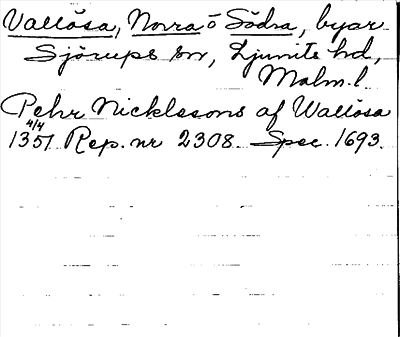 Vallösa, Norra o Södra, byar
Sjörups sn, Ljunits hd,
Malm. l.
Pehr Nicklssons af Wallösa
4/4
1357 Rep. nr 2308. Spec. 1693.